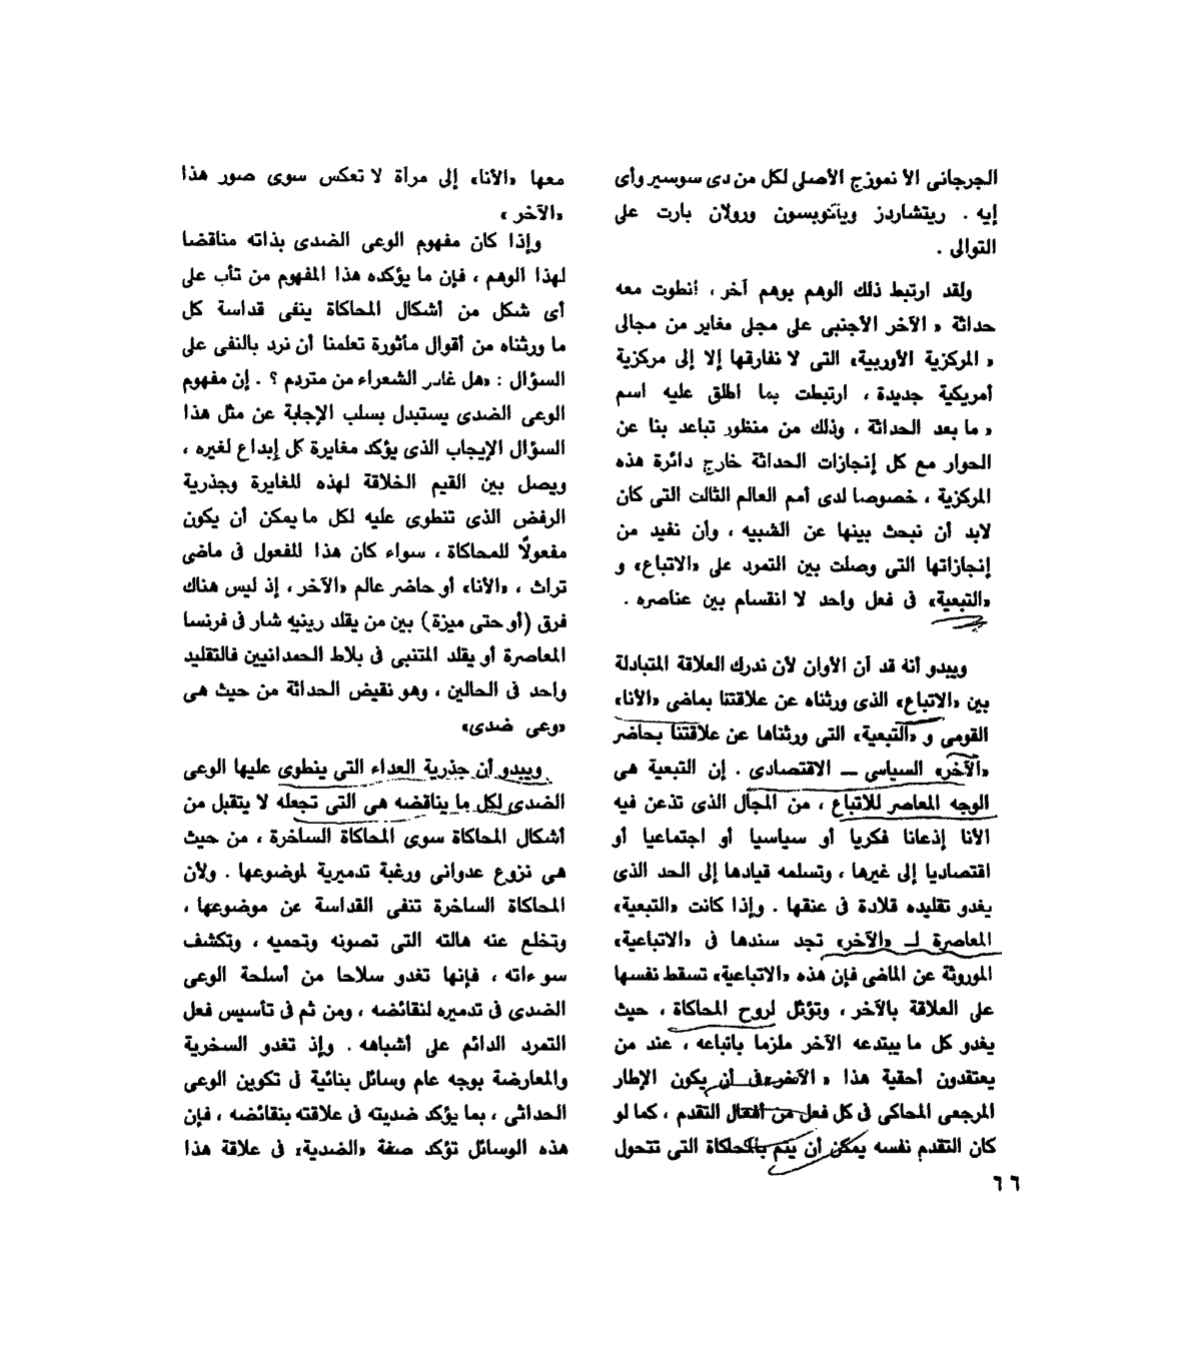 الجرجانى الأ نموزج الأصلى لكل من دى سوسير وأى
إيه . ريتشاردز وياكوبسون ورولان بارت على
التوالى .
ولقد ارتبط ذلك الوهم بوهم آخر ، انطوت معه
حداثة « الآخر الأجنبى على مجلى مغاير من مجالى
« المركزية الأوربية» التى لا نفارقها إلا إلى مركزية
أمريكية جديدة ، ارتبطت بما اطلق عليه اسم
« ما بعد الحداثة ، وذلك من منظور تباعد بنا عن
الحوار مع كل إنجازات الحداثة خارج دائرة هذه
المركزية ، خصوصا لدى أمم العالم الثالث التى كان
لابد أن نبحث بينها عن الشبيه ، وأن نفيد من
إنجازاتها التى وصلت بين التمرد على «الاتباع» و
«التبعية» فى فعل واحد لا انقسام بين عناصره .
ويبدو أنه قد آن الأوان لأن ندرك العلاقة المتبادلة
بين «الاتباع» الذى ورثناه عن علاقتنا بماضى «الأنا»
القومى و «التبعية» التى ورثناها عن علاقتنا بحاضر
«الآخر» السياسى ــ الاقتصادى . إن التبعية هى
الوجه المعاصر للاتباع ، من المجال الذى تذعن فيه
الأنا إذعانا فكريا أو سياسيا أو اجتماعيا أو
اقتصاديا إلى غيرها ، وتسلمه قيادها إلى الحد الذى
يغدو تقليده قلادة فى عنقها . وإذا كانت «التبعية»
المعاصرة لـ «الآخر» تجد سندها فى «الاتباعية»
الموروثة عن الماضى فإن هذه «الاتباعية» تسقط نفسها
على العلاقة بالآخر ، وتؤثل لروح المحاكاة ، حيث
يغدو كل ما يبتدعه الآخر ملزما باتباعه ، عند من
يعتقدون أحقية هذا « الآخر»فى أن يكون الإطار
المرجعى المحاكى فى كل فعل من أفعال التقدم ، كما لو
كان التقدم نفسه يمكن أن يتم بالمحاكاة التى تتحول
معها «الأنا» إلى مرآة لا تعكس سوى صور هذا
«الآخر »
وإذا كان مفهوم الوعى الضدى بذاته مناقضا
لهذا الوهم ، فإن ما يؤكده هذا المفهوم من تأب على
أى شكل من أشكال المحاكاة ينفى قداسة كل
ما ورثناه من أقوال مأثورة تعلمنا أن نرد بالنفى على
السؤال : «هل غادر الشعراء من متردم ؟ . إن مفهوم
الوعى الضدى يستبدل بسلب الإجابة عن مثل هذا
السؤال الإيجاب الذى يؤكد مغايرة كل إبداع لغيره ،
ويصل بين القيم الخلاقة لهذه المغايرة وجذرية
الرفض الذى تنطوى عليه لكل ما يمكن أن يكون
مفعولًا للمحاكاة ، سواء كان هذا المفعول فى ماضى
تراث ، «الأنا» أو حاضر عالم «الآخر ، إذ ليس هناك
فرق (أو حتى ميزة) بين من يقلد رينيه شار فى فرنسا
المعاصرة أو يقلد المتنبى فى بلاط الحمدانيين فالتقليد
واحد فى الحالين ، وهو نقيض الحداثة من حيث هى
«وعى ضدى»
ويبدو أن جذرية العداء التى ينطوى عليها الوعى
الضدى لكل ما يناقضه هى التى تجعله لا يتقبل من
أشكال المحاكاة سوى المحاكاة الساخرة ، من حيث
هى نزوع عدوانى ورغبة تدميرية لموضوعها . ولأن
المحاكاة الساخرة تنفى القداسة عن موضوعها ،
وتخلع عنه هالته التى تصونه وتحميه ، وتكشف
سوءاته ، فإنها تغدو سلاحا من أسلحة الوعى
الضدى فى تدميره لنقائضه ، ومن ثم فى تأسيس فعل
التمرد الدائم على أشباهه . وإذ تغدو السخرية
والمعارضة بوجه عام وسائل بنائية فى تكوين الوعى
الحداثى ، بما يؤكد ضديته فى علاقته بنقائضه ، فإن
هذه الوسائل تؤكد صفة «الضدية» فى علاقة هذا
٦٦